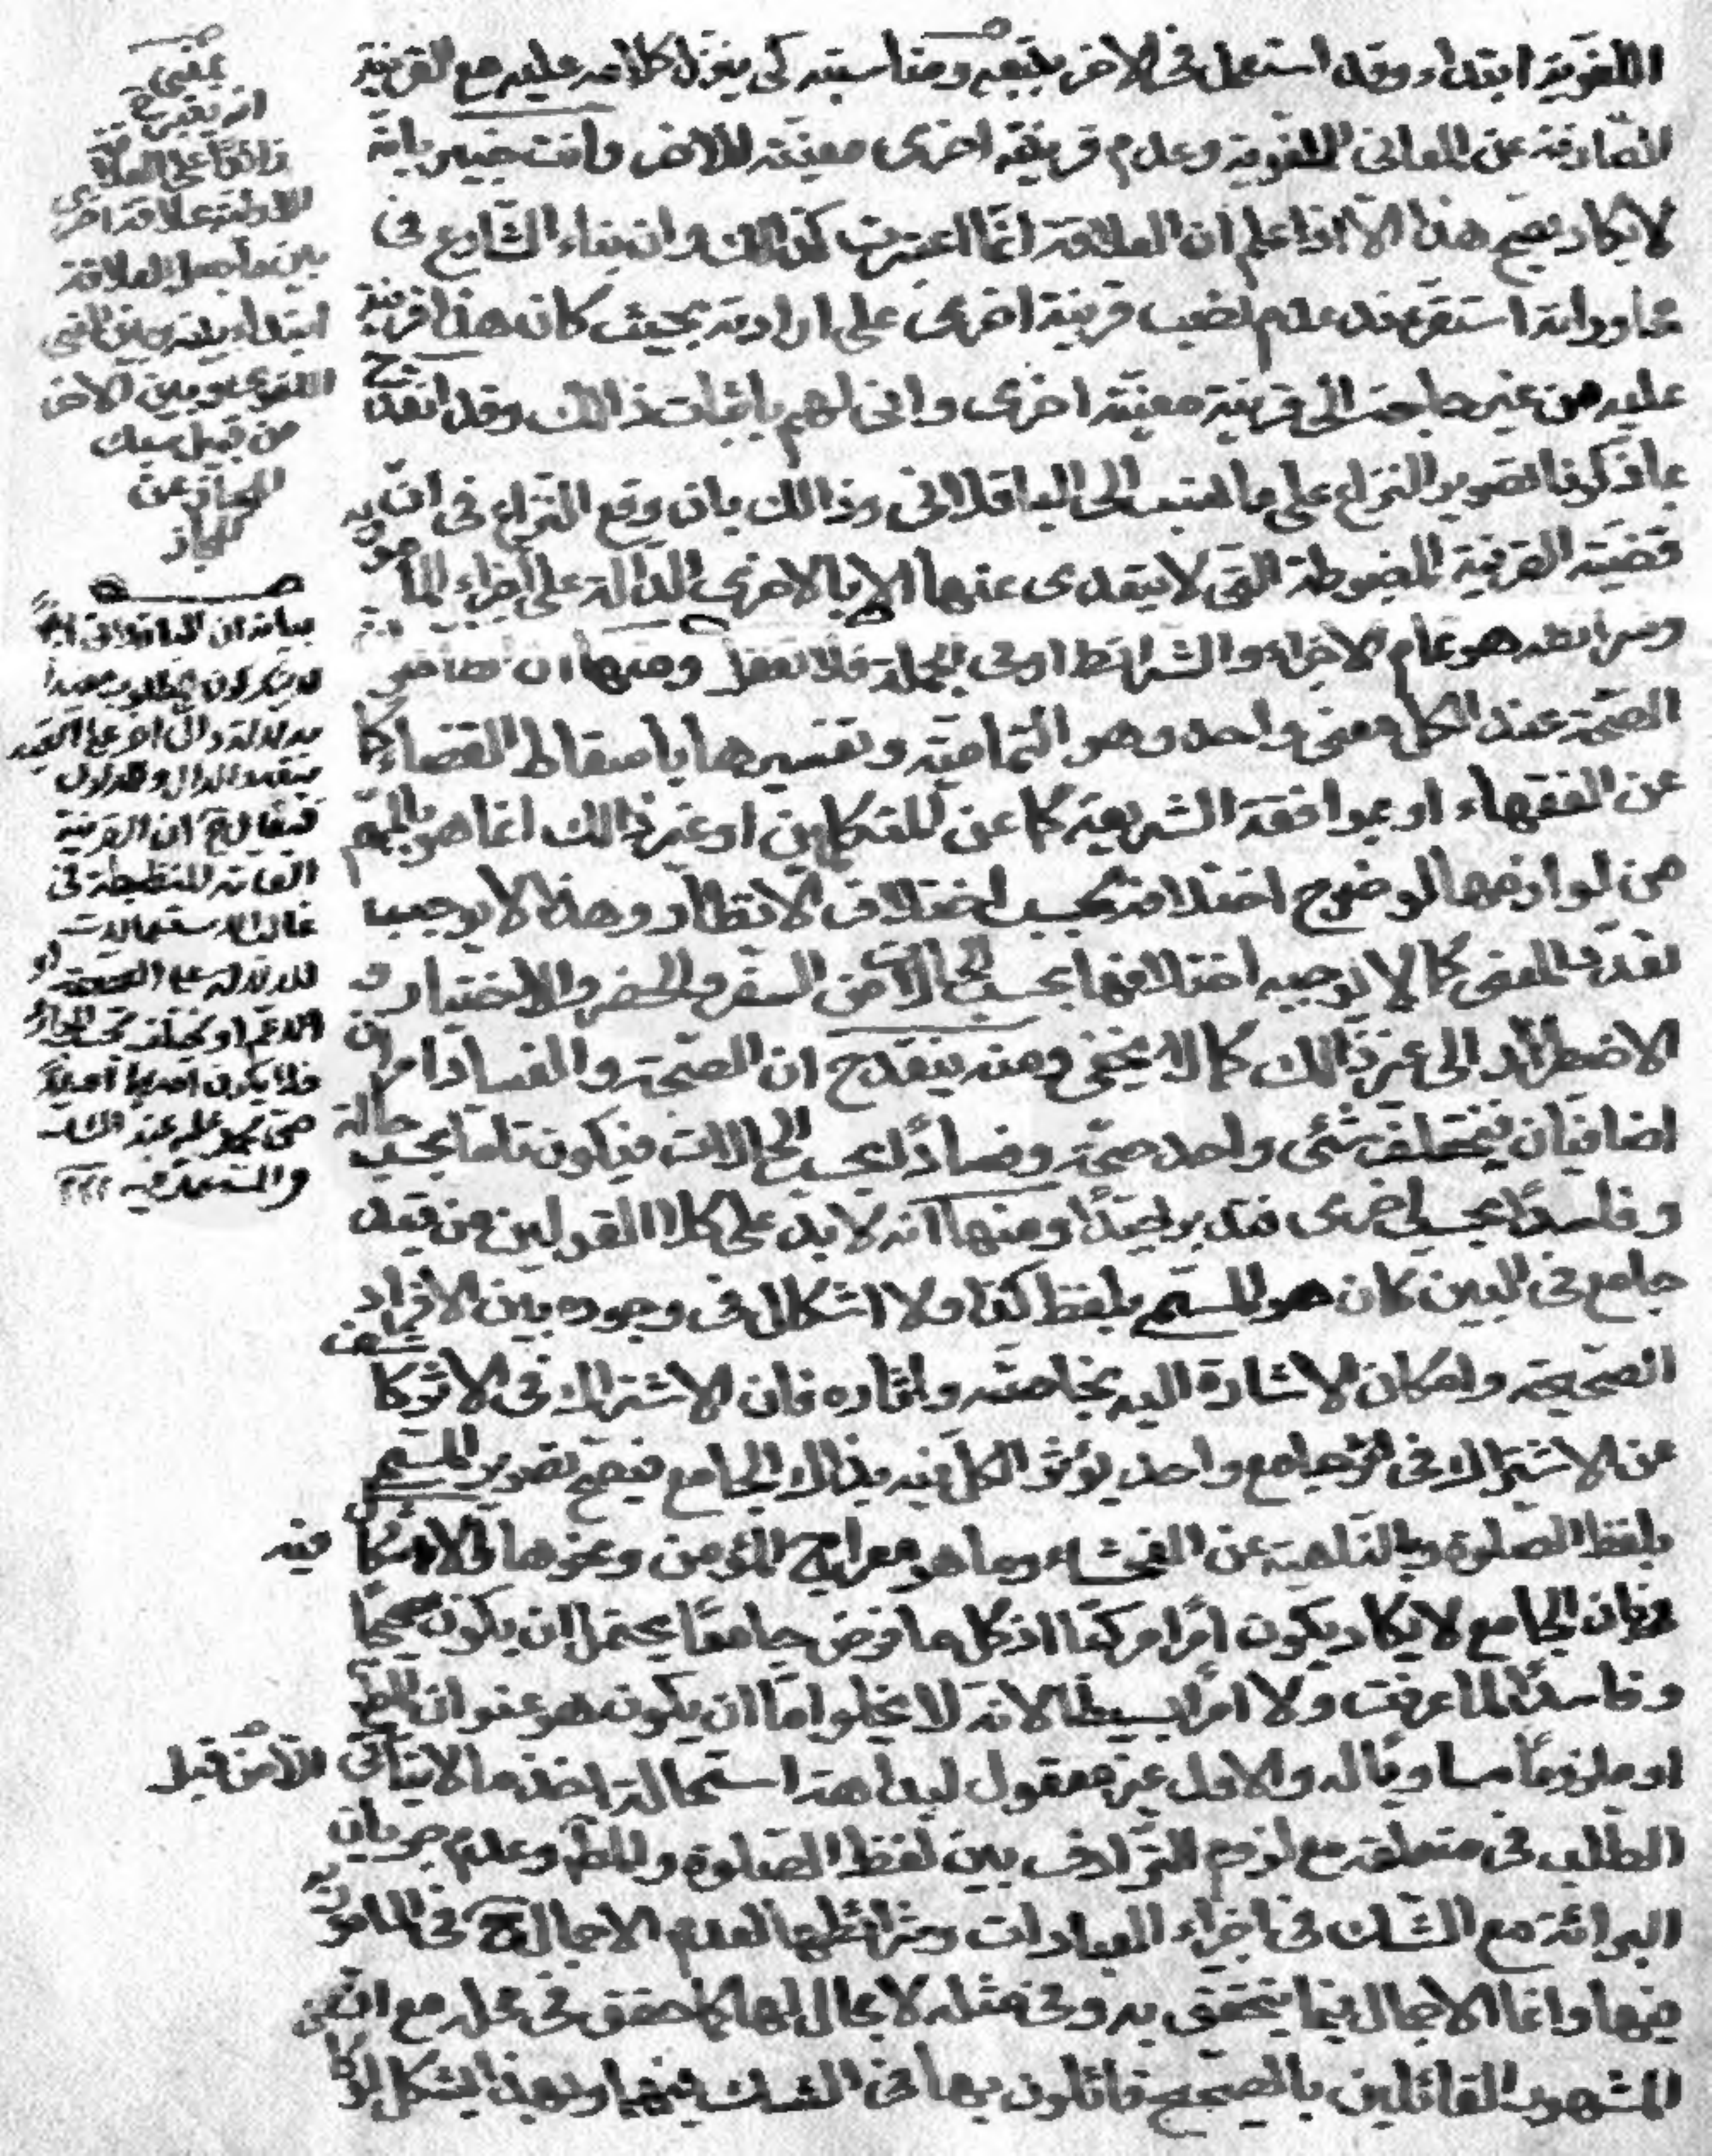 اللغوية ابتداء وقد استعمل في الاخر بتبعه ومناسبته كي ينزل كلامه عليه مع القرينة
الصارفة عن المعانى اللغوية وعدم قرينة اخرى معينة للاخر وانت خبير بانه
لا يكاد يصح هذا الا اذا علم ان العلاقة انما اعتبرت كذلك وان بناء الشارع في
محاوراته استقر عند عدم نصب قرينة اخرى على ارادته بحيث كان هذا قرينة
عليه من غير حاجة الى قرينة معينة اخرى وانى لهم باثبات ذالك وقد انقدح
بما ذكرنا تصوير النزاع على ما نسب الى الباقلانى وذالك بان وقع النزاع في ان
قضية القرينة المضبوطة التي لا يتعدى عنها الا بالاخرى الدالة على اجزاء المأمور به
وشرائطه هو تمام الاجزاء والشرائط او في الجملة فلا تغفل ومنها ان الظاهر ان
الصحة عند الكل بمعنى واحد وهو التمامية وتفسيرها باسقاط القضاء كما
عن الفقهاء او بموافقة الشريعة كما عن المتكلمين او غير ذالك انما هو بالمهم
من لوازمها لوضوح اختلافه بحسب اختلاف الانظار وهذا لا يوجب
تعدد المعنى كما لا يوجبه اختلافها بحسب الحالات من السفر والحضر والاختيار و
الاضطرار الى غير ذالك كما لا يخفى ومنه ينقدح ان الصحة والفساد امران
اضافيان فيختلف شئ واحد صحة وفسادًا بحسب الحالات فيكون تاما بحسب حالة
وفاسدًا بحسب اخرى فتدبر جيدًا ومنها انه لا بد على كلا القولين من قدر
جامع في البين كان هو المسمى بلفظ كذا ولا اشكال في وجوده بين الافراد
الصحيحة وامكان الاشارة اليه بخواصه واثاره فان الاشتراك في الاثر كاشف
عن الاشتراك في جامع واحد يؤثر الكل فيه بذالك الجامع فيصح تصوير المسمى
بلفظ الصلوة بالناهية عن الفحشاء وما هو معراج المؤمن ونحوهما والاشكال فيه
بان الجامع لا يكاد يكون امرًا مركبًا اذ كل ما فرض جامعًا يحتمل ان يكون صحيحًا
وفاسدًا لما عرفت ولا امرًا بسيطًا لانه لا يخلو اما ان يكون هو عنوان المط
او ملزومًا مساويًا له والاول غير معقول لبداهة استحالة اخذ ما لا يتأتى الا من قبل
الطلب في متعلقه مع لزوم الترادف بين لفظ الصلوة والمط وعدم جريان
البرائة مع الشك في اجزاء العبادات وشرائطها لعدم الاجمال ح في المأمور به
فيها وانما الاجمال فيما يتحقق به وفى مثله لا مجال لها كما حقق في محله مع ان
المشهور القائلين بالصحيح قائلون بها في الشك فيها وبهذا يشكل لو كان
بمعنى
العلاقة
علاقة اخرى
بين
ابتداء وبين المعنى
اللغوى وبين الاخر
من قبيل سبك
المجاز عن
المجاز
ان القرينة
العامة المنضبطة في
غالب الاستعمالات
الاعم او يختلف بحسب
فلا يكون احدهما اصلاً
حتى يحمل عليه عند الشك